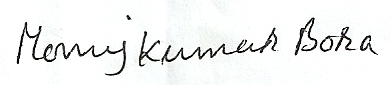 Monuj Kumar Bora